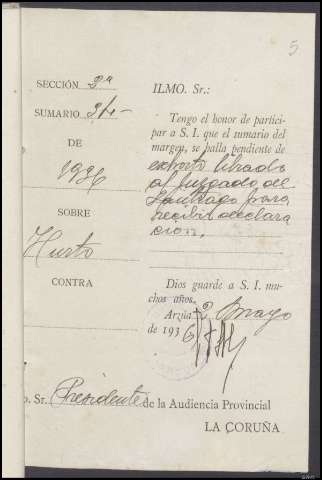 5
SECCIÓN 2ª
SUMARIO 24-
DE
1936
SOBRE
Hurto
CONTRA
ILMO. Sr.:
Tengo el honor de partici-
par a S. I. que el sumario del
margen, se halla pendiente de
exhorto librado
al Juzgado de
Santiago para
recibir declara
cion.
Dios guarde a S. I. mu-
chos años.
Arzúa 2 Mayo
de 1936
o. Sr. Presidente de la Audiencia Provincial
LA CORUÑA